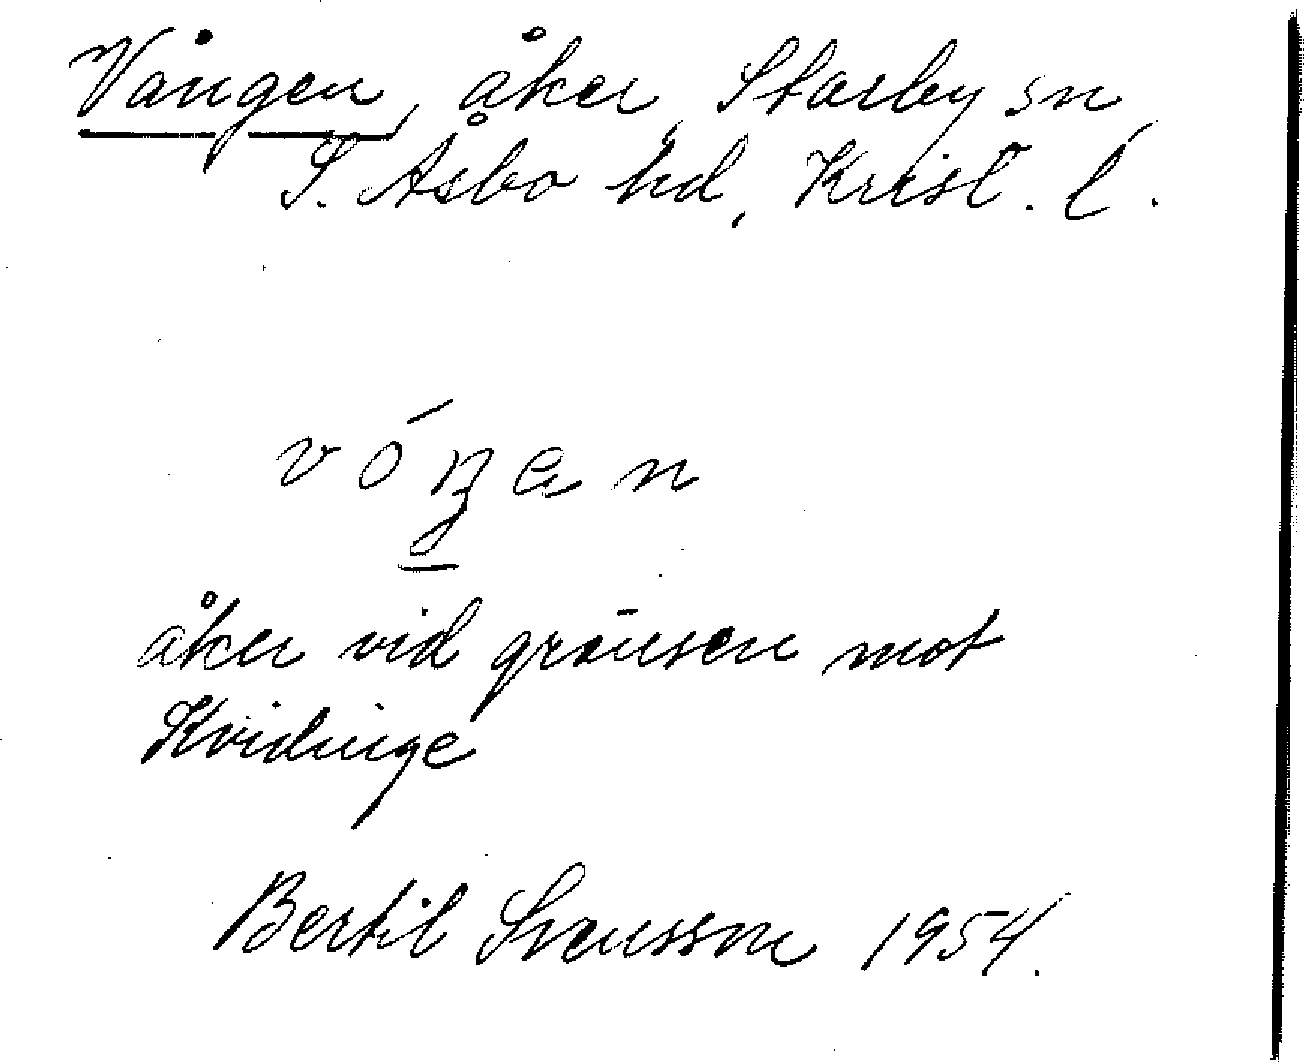 Vången, åker, Starby sn,
S. Åsbo hd, Krist. l.
åker vid gränsen mot
Kvidinge
Bertil Svensson 1954.